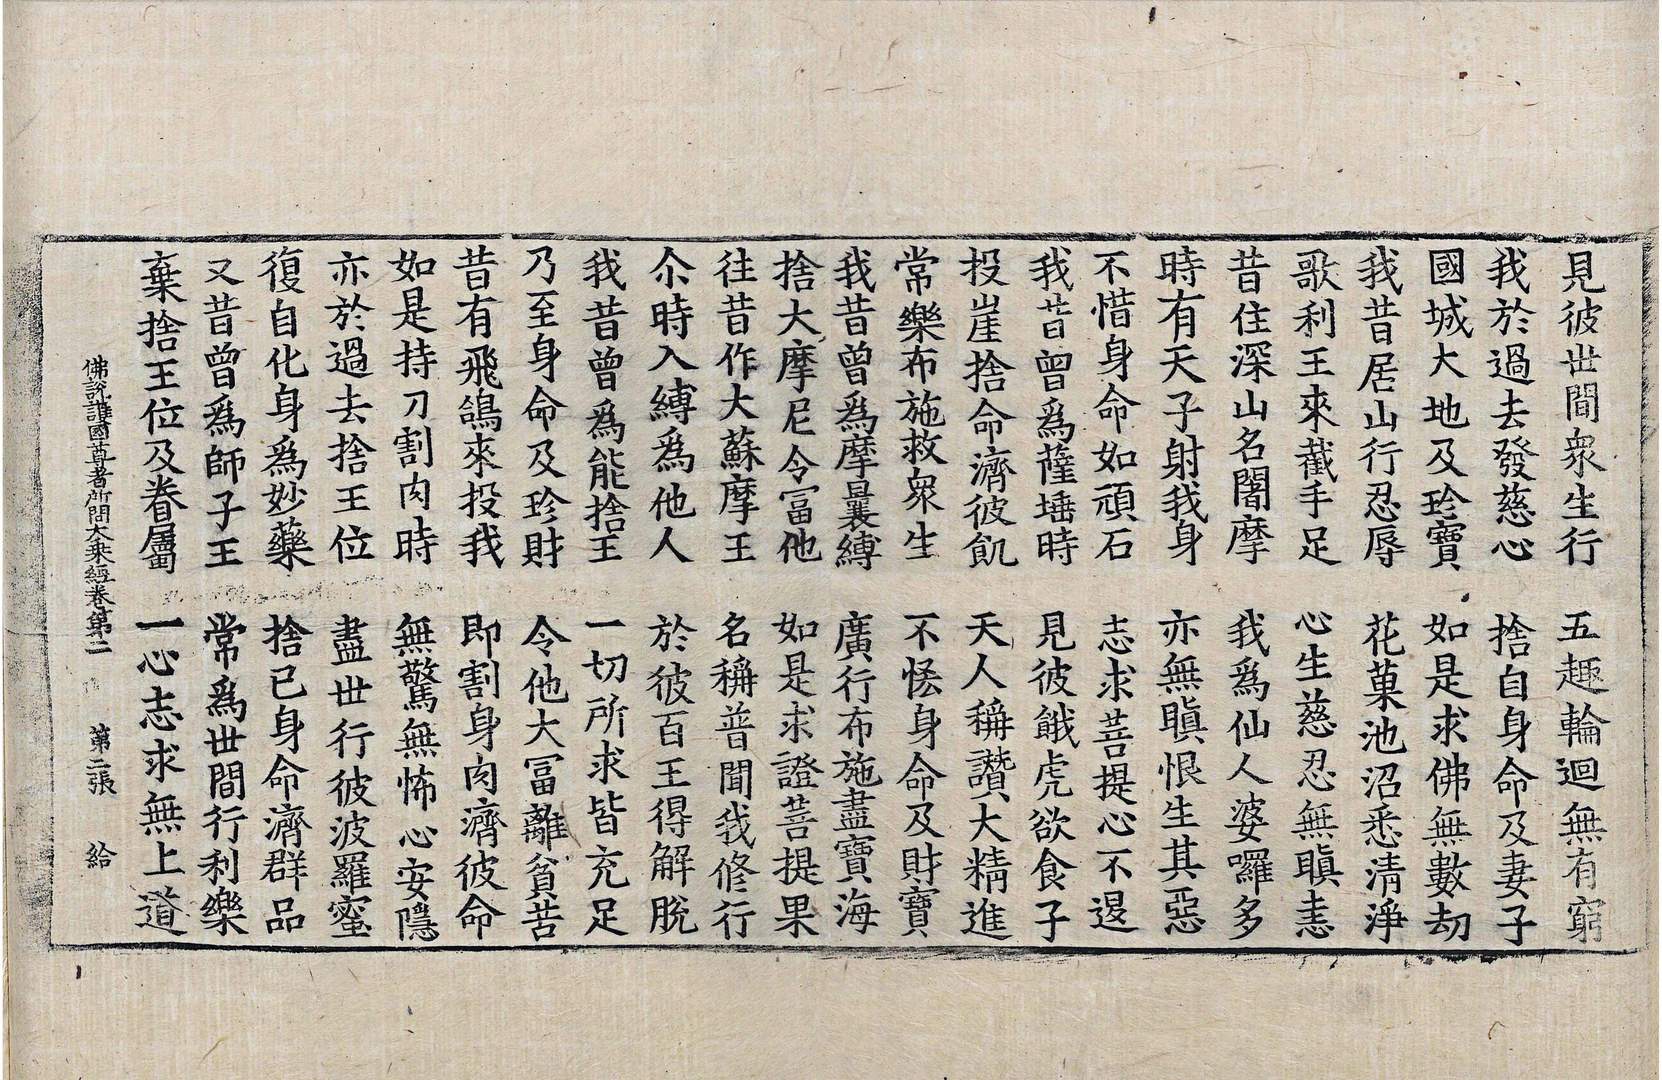 見彼世間衆生行　五趣輪迴無有窮
我於過去發慈心　捨自身命及妻子
國城大地及珍寶　如是求佛無數劫
我昔居山行忍辱　花菓池沼悉清淨
歌利王來截手足　心生慈忍無瞋恚
昔住深山名闇摩　我爲仙人婆囉多
時有天子射我身　亦無瞋恨生其惡
不惜身命如頑石　志求菩提心不退
我昔曾爲薩埵時　見彼餓虎欲食子
投崖捨命濟彼飢　天人稱讚大精進
常樂布施救衆生　不悋身命及財寶
我昔曾爲摩曩縛　廣行布施盡寶海
捨大摩尼令冨他　如是求證菩提果
往昔作大蘇摩王　名稱普聞我修行
尒時入縛爲他人　於彼百王得解脫
我昔曾爲能捨王　一切所求皆充足
乃至身命及珍財　令他大冨離貧苦
昔有飛鴿來投我　即割身肉濟彼命
如是持刀割肉時　無驚無怖心安隱
亦於過去捨王位　盡世行彼波羅蜜
復自化身爲妙藥　捨已身命濟群品
又昔曾爲師子王　常爲世間行利樂
棄捨王位及眷屬　一心志求無上道
佛說護國尊者所問大乘經卷第二　第二張　給